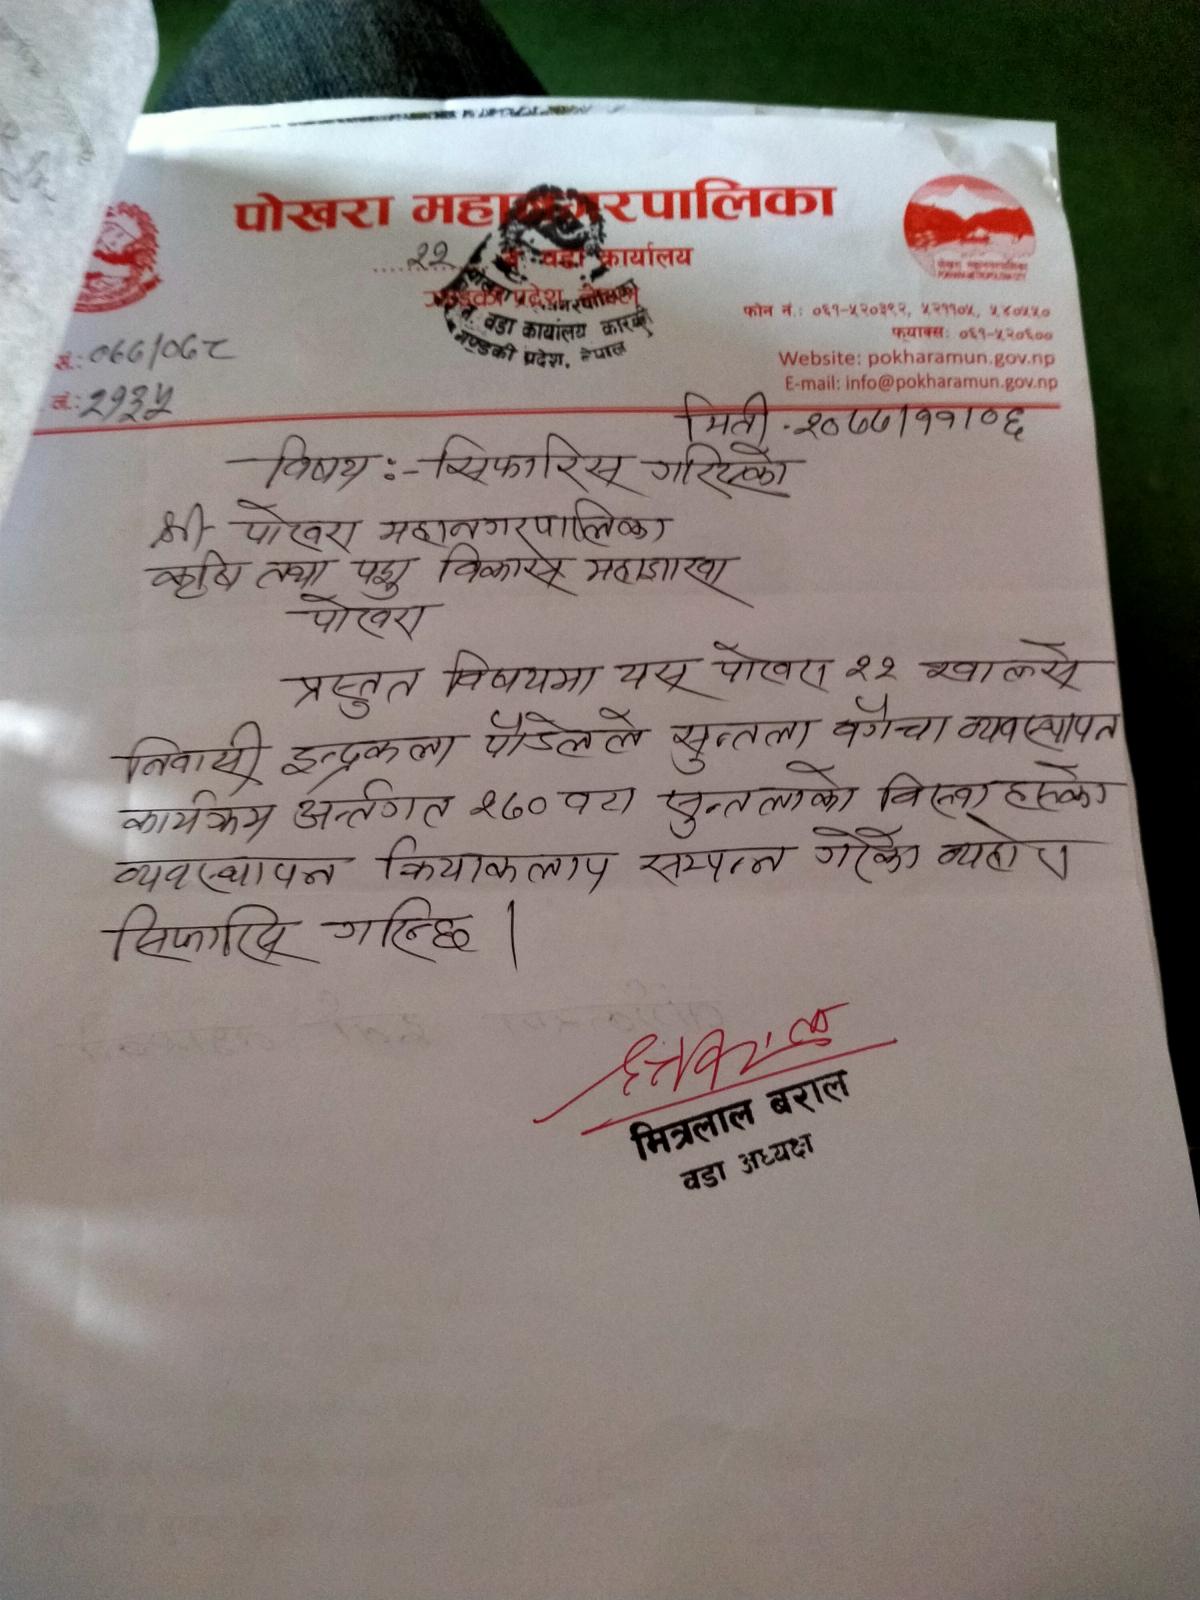 पोखरा महानगरपालिका
२२ वडा कार्यालय
गण्डकी प्रदेश, नेपाल
नं. वडा कार्यालय
गण्डकी प्रदेश, नेपाल
फोन नं.: ०६१-५२०३९२, ५२११०५, ५४०५५०
फ्याक्स: ०६१-५२०६००
Website: pokharamun.gov.np
E-mail: info@pokharamun.gov.np
सं.: ०७७/०७८
नं.: २१३५
मिती - २०७७/११/०६
विषय :- सिफारिस गरिएको
श्री पोखरा महानगरपालिका
कृषि तथा पशु विकास महाशाखा
पोखरा
प्रस्तुत विषयमा यस पोखरा २२
निवासी इन्द्रकला पौडेलले सुन्तला वगैचा व्यवस्थापन
कार्यक्रम अर्न्तगत २७० वटा सुन्तलाको विरुवा
व्यवस्थापन क्रियाकलाप सम्पन्न गरेको व्यहोरा
सिफारिस गरिन्छ |
मित्रलाल बराल
वडा अध्यक्ष